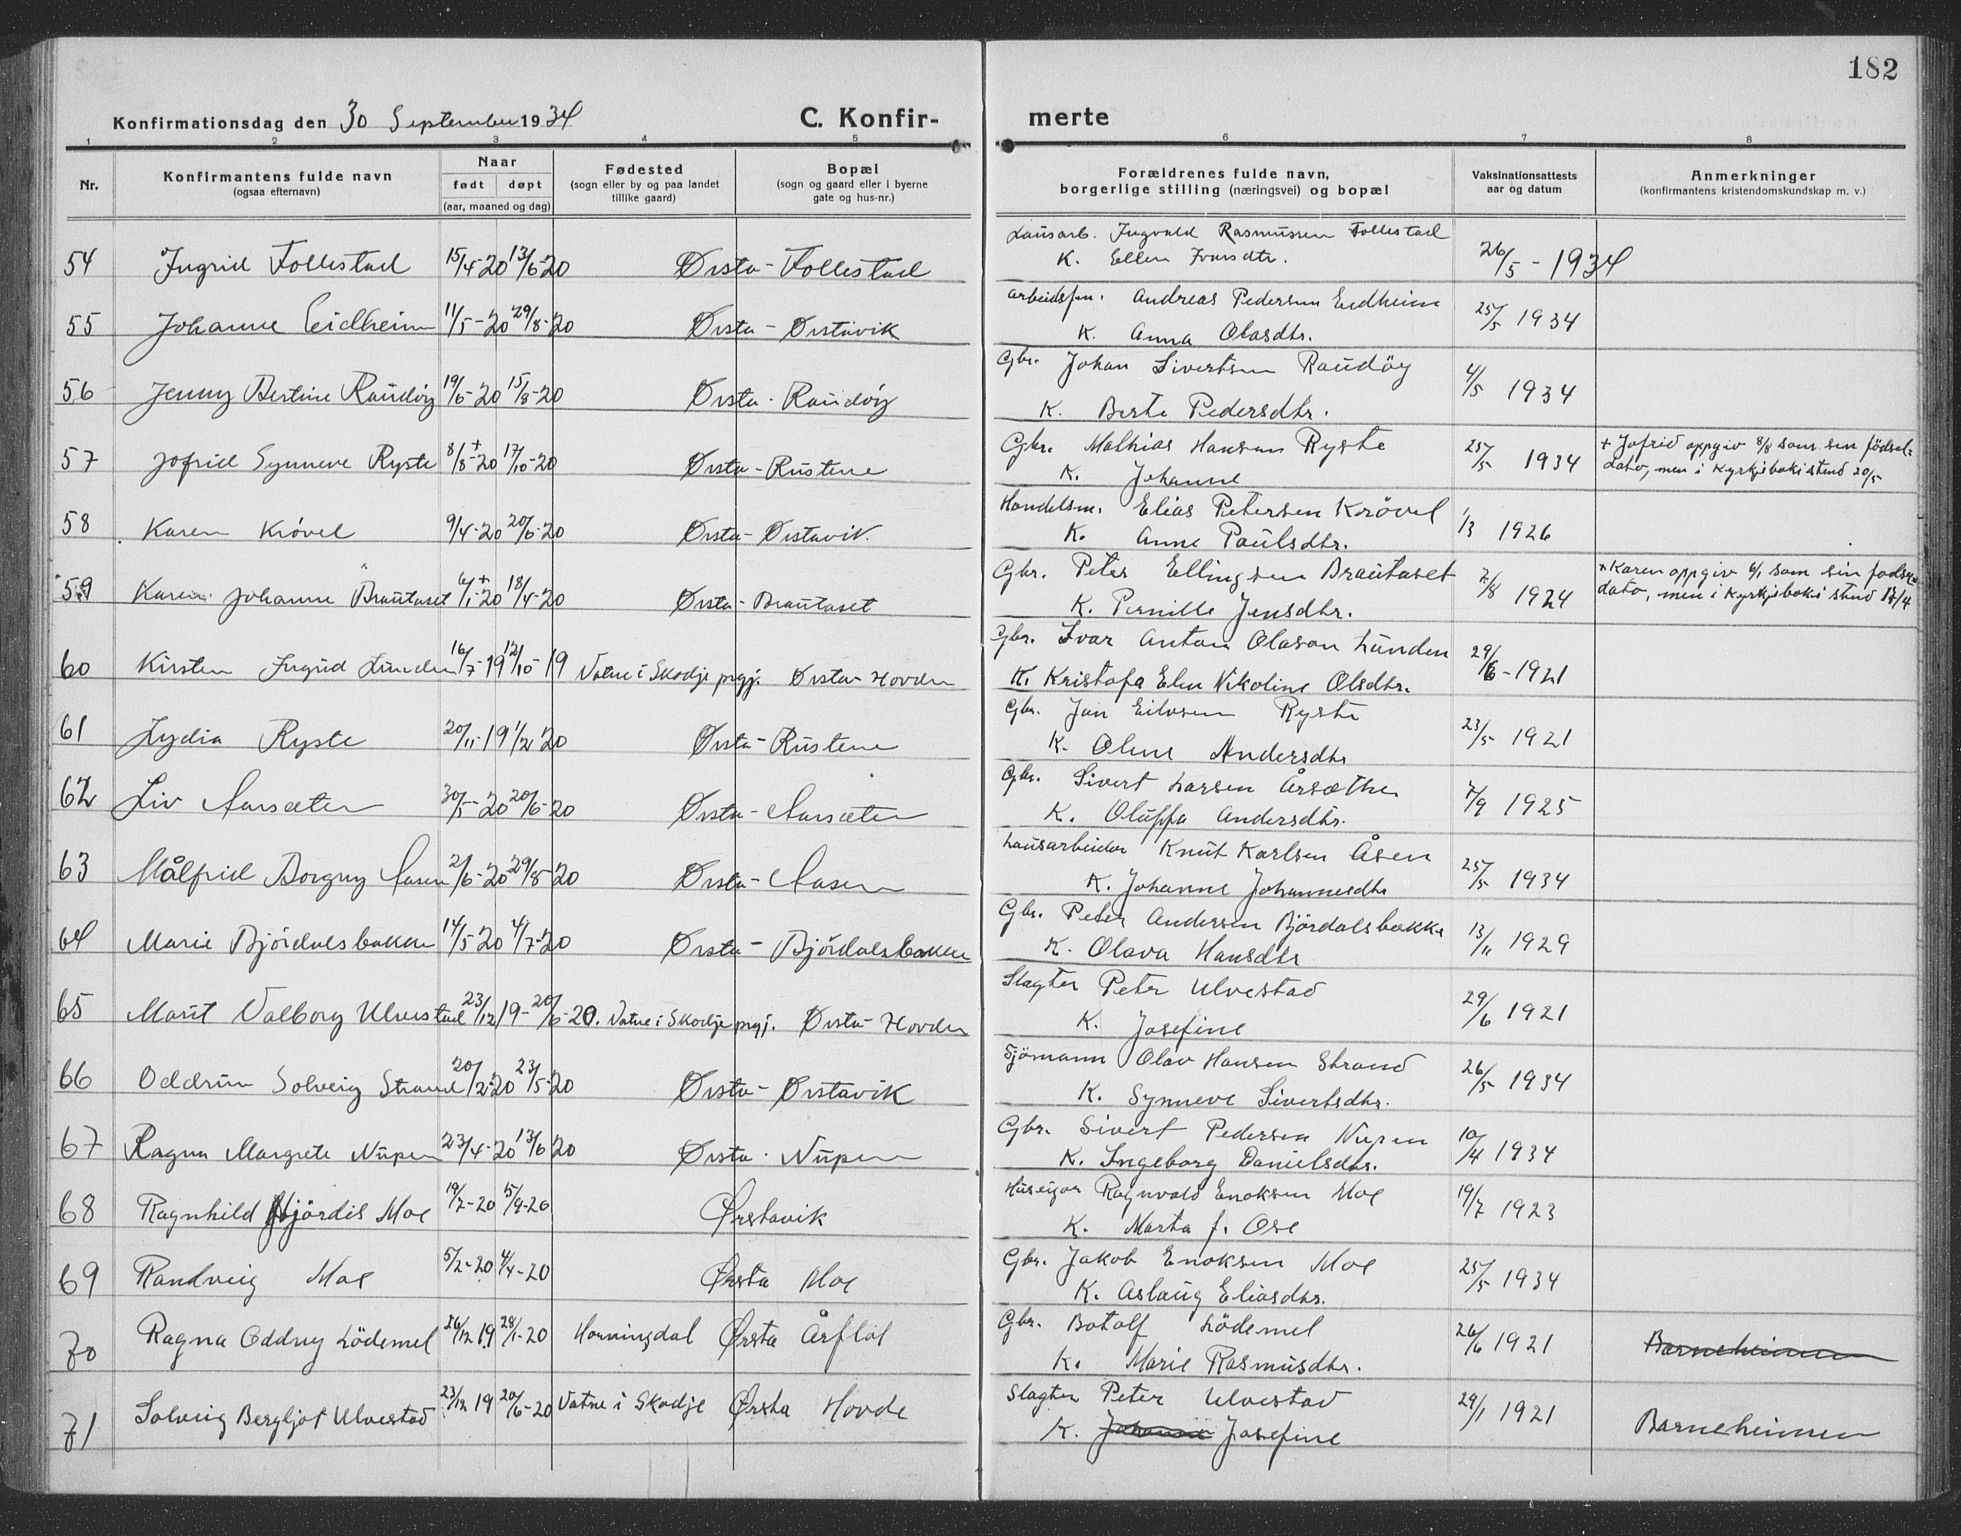 182
Konfirmationsdag den 30 September 1934 C. Konfir- merte
1 2 3 4 5 6 7 8
Nr. Konfirmantens fulde navn (ogsaa efternavn) Naar født døpt (aar, maaned og dag) Fødested (sogn eller by og paa landet tillike gaard) Bopæl (sogn og gaard eller i byerne gate og hus-nr.) Forældrenes fulde navn, borgerlige stilling (næringsvei) og bopæl Vaksinationsattests aar og datum Anmerkninger (konfirmantens kristendomskundskap m. v.)
54 Ingrid Follestad 15/4-20 13/6-20 Ørsta - Follestad Lausarb. Ingvald Rasmussen Follestad
K. Ellen Ivarsdtr. 26/5 - 1934
55 Johanne Eidheim 11/5-20 29/8-20 Ørsta - Ørstavik Arbeidsfm. Andreas Pedersen Eidheim
K. Anna Olasdtr. 25/5 1934
56 Jenny Bertine Raudøy 19/6-20 15/8-20 Ørsta - Raudøy Gbr. Johan Sivertsen Raudöy
K. Berte Pedersdtr. 4/5 1934
57 Jofrid Synneve Ryste 8/8+-20 17/10-20 Ørsta - Rustene Gbr. Mathias Hansen Ryste
K. Johanne 25/5 1934 + Jofrid oppgiv 8/8 som sin födsel-
dato, men i Kyrkjeboki stend 20/5
58 Karen Krövel 9/4-20 20/6-20 Ørsta - Ørstavik. Handelsm. Elias Petersen Krövel
K. Anne Paulsdtr. 1/3 1926
59 Karen Johanne Brautaset 6/1+-20 18/4-20 Ørsta - Brautaset Gbr. Peter Ellingsen Brautaset
K. Pernille Jensdtr. 7/8 1924 + Karen oppgiv 6/1 som sin födsels-
dato, men i Kyrkjeboki stend /4
60 Kirsten Ingrid Lunden 16/7-19 12/10-19 Vatne i Skodje prgj. Ørsta - Hovden Gbr. Ivar Anton Olason Lunden
K. Kristofa Elen Nikoline Olsdtr. 29/6 - 1921
61 Lydia Ryste 20/11-19 1/2 20 Ørsta - Rustene Gbr. Jon Eilvsen Ryste
K. Oline Andersdtr 23/5 1921
62 Liv Aarsæter 30/5-20 20/6-20 Ørsta - Aarsæter Gbr. Sivert Larsen Årsæther
K. Oluffa Andersdtr. 7/9 1925
63 Målfrid Borgny Aasen 21/6-20 29/8-20 Ørsta - Aasen Lausarbeider Knut Karlsen Åsen
K. Johanne Johannesdtr 25/5 1934
64 Marie Björdalsbakken 14/5-20 4/7-20 Ørsta - Björdalsbakken Gbr. Peter Andersen Björdalsbakke
K. Olava Hansdtr 13/11 1929
65 Marit Valborg Ulvestad 23/12 19 - 20/6-20. Vatne i Skodje prgj. Ørsta - Hovden Slagter Peter Ulvestad
K. Josefine 29/6 1921
66 Oddrun Solveig Strand 20/2-20 23/5-20 Ørsta - Ørstavik Sjömann Olav Hansen Strand
K. Synneve Sivertsdtr. 26/5 1934
67 Ragna Margrete Nupen 23/4-20 13/6 20 Ørsta - Nupen Gbr. Sivert Pedersen Nupen
K. Ingeborg Danielsdtr. 10/4 1934
68 Ragnhild Hjördis Moe 19/7-20 5/9-20 Ørstavik Huseigar Ragnvald Enoksen Moe
K. Marta f. Ose 19/7 1923
69 Randveig Moe 5/2-20 4/4-20 Ørsta Moe Gbr. Jakob Enoksen Moe
K. Aslaug Eliasdtr. 25/5 1934
70 Ragna Oddny Lödemel 26/12 19 28/1-20 Hornningdal Ørsta Årflot Gbr. Botolf Lödemel
K. Marie Rasmusdtr. 26/6 1921 Barneheimen
71 Solveig Bergljot Ulvestad 23/12 19 20/6-20 Vatne i Skodje Ørsta Hovde Slagter Peter Ulvestad
K. Johanne Josefine 29/1 1921 Barneheimen